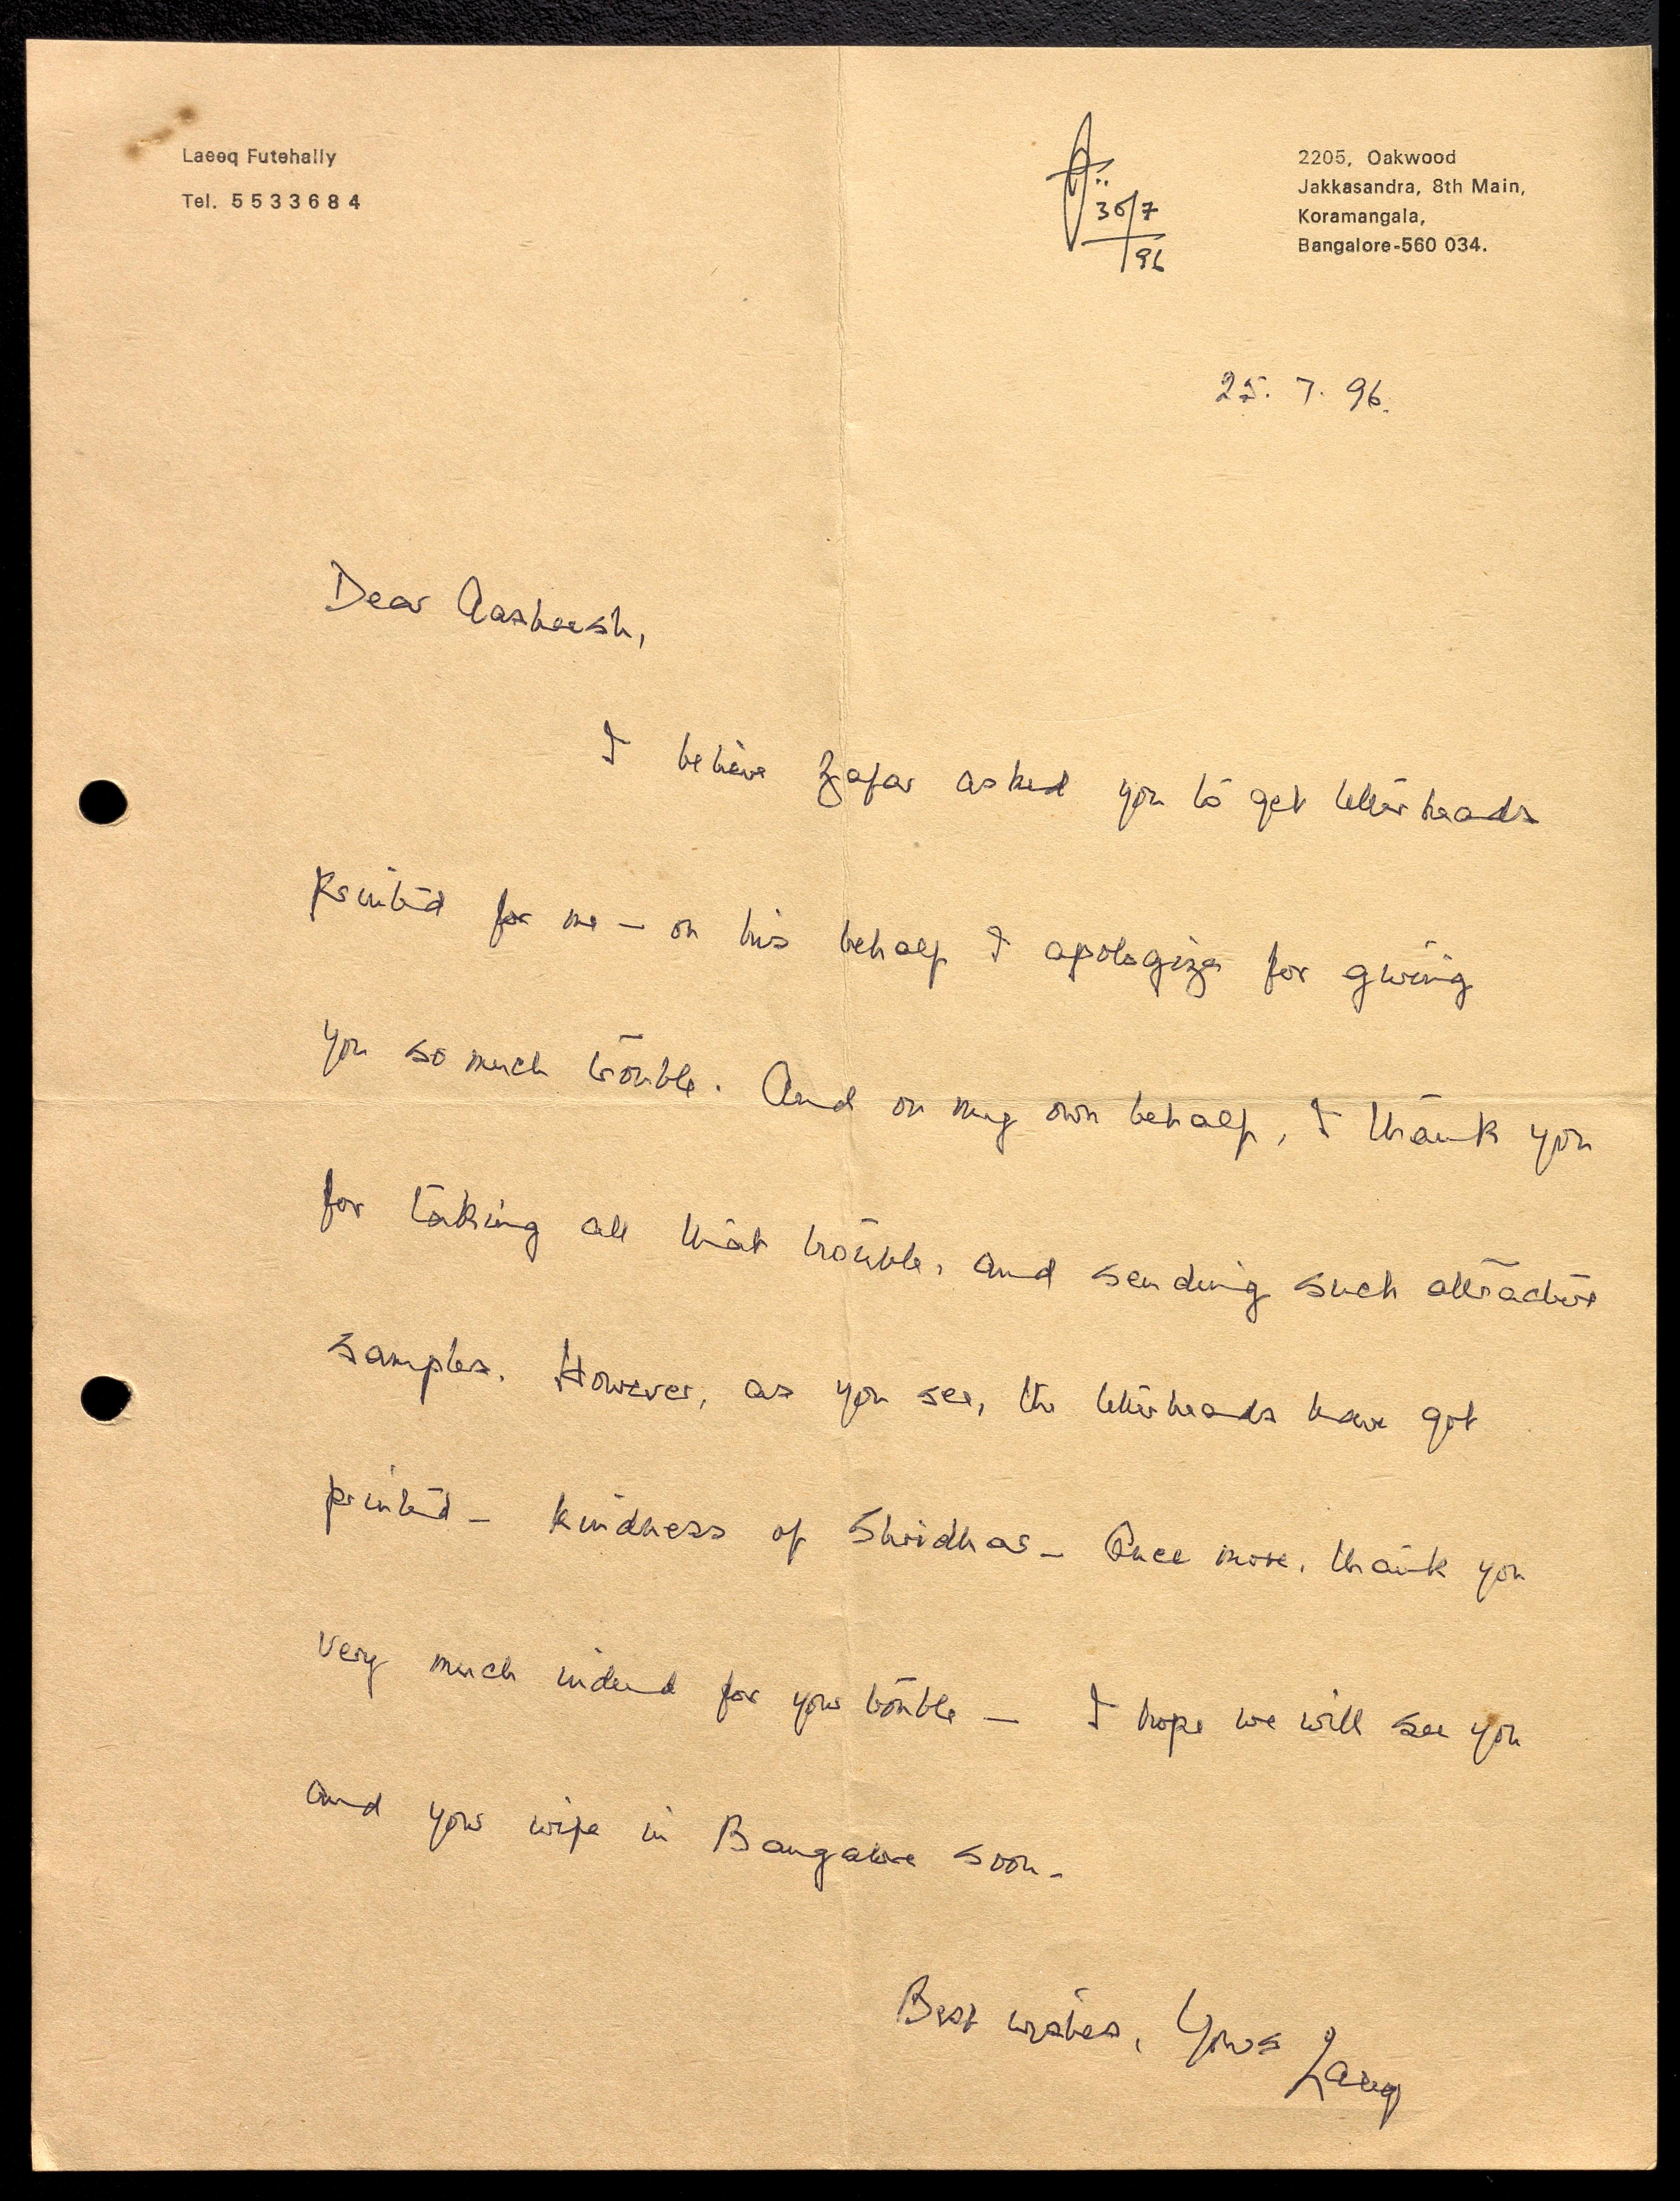 Laeeq Futehally
Tel. 5533684
30/7
96
2205, Oakwood
Jakkasandra, 8th Main,
Koramangala,
Bangalore-560 034.
25. 7. 96.
Dear Aasheesh,
I believe Zafar asked you to get letterheads
printed for me — on his behalf I apologize for giving
you so much trouble. And on my own behalf, I thank you
for taking all that trouble, and sending such attractive
samples. However, as you see, the letterheads have got
printed — kindness of Shridhar — Once more, thank you
very much indeed for your trouble — I hope we will see you
and your wife in Bangalore soon —
Best wishes, Yours
Laeeq